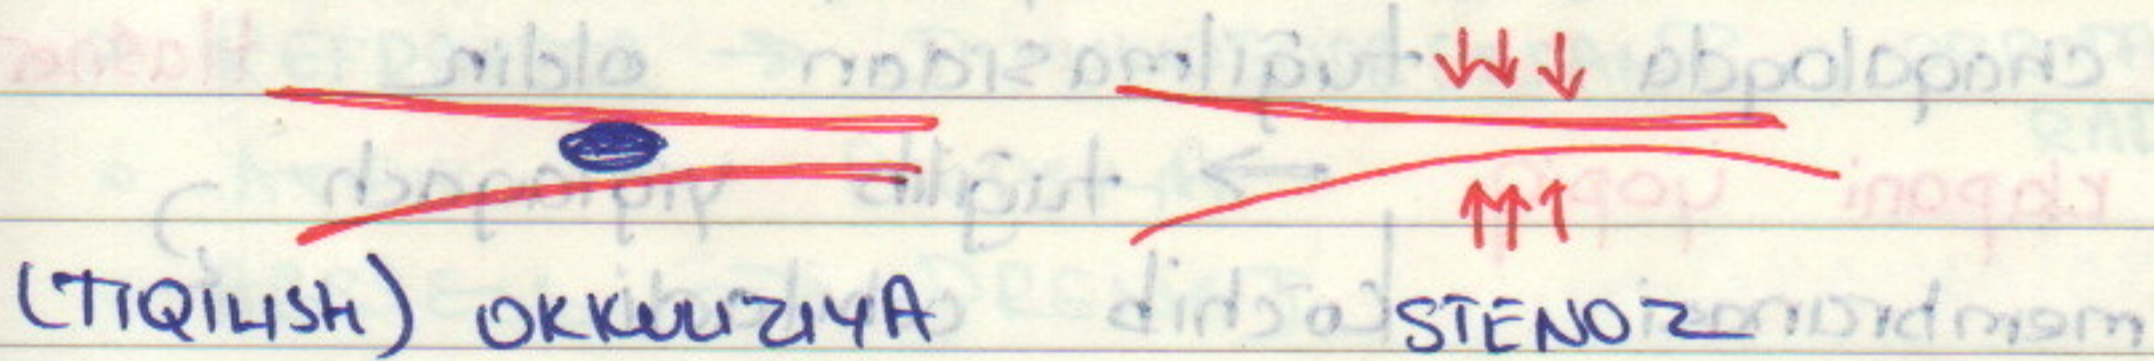 (TIQILISH) OKKLUZIYA STENOZ